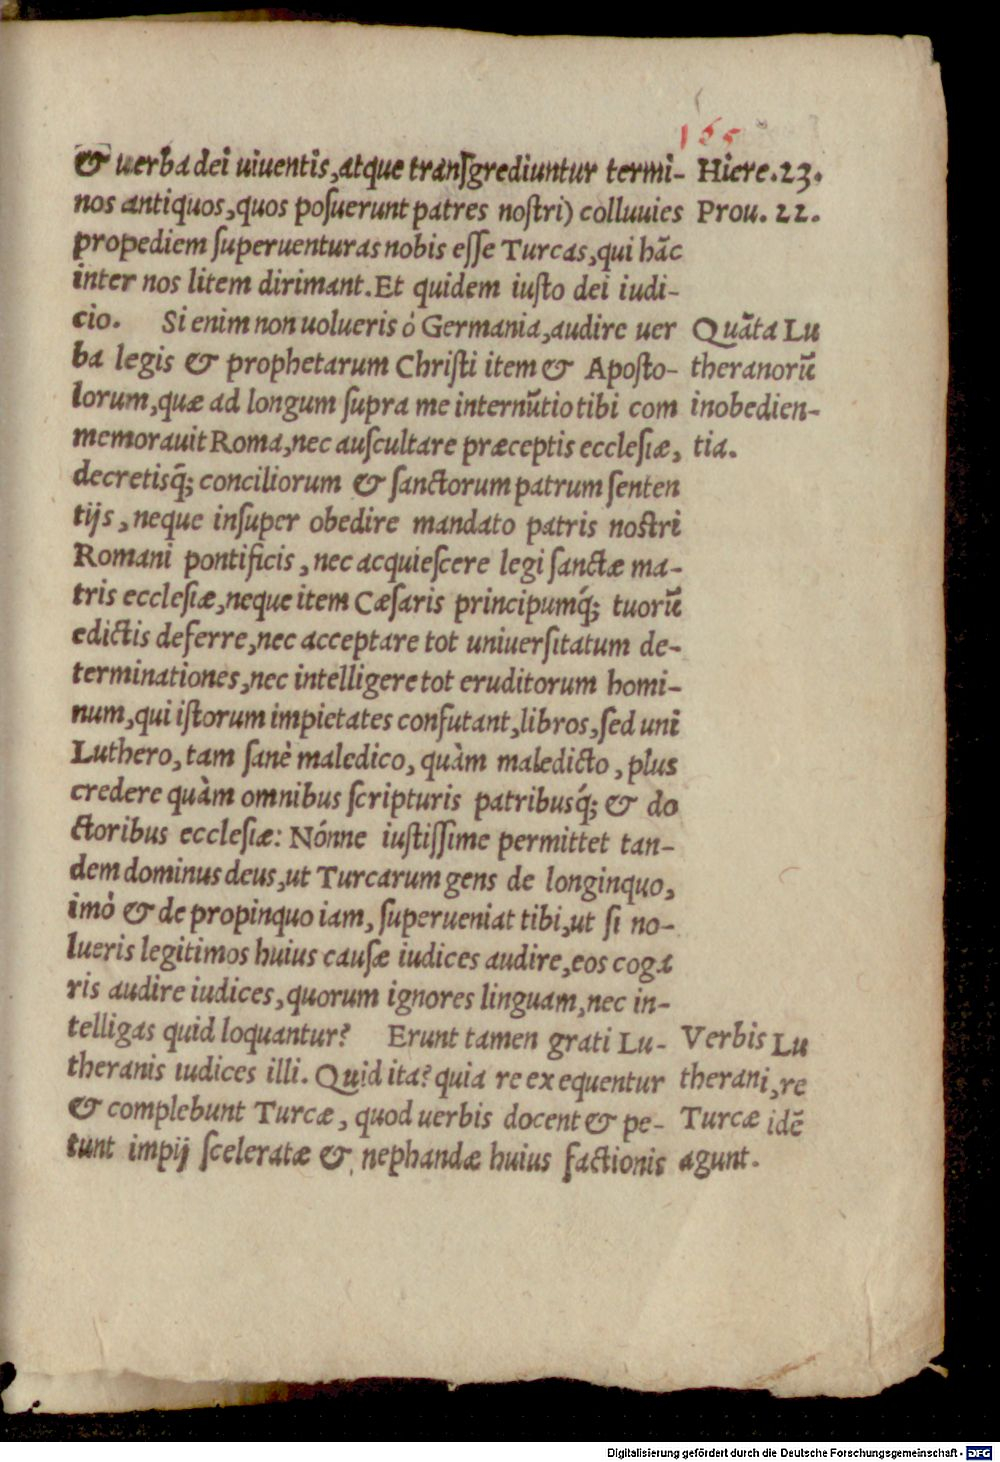 165
& uerba dei uiuentis, atque tranſgrediuntur termi-
nos antiquos, quos poſuerunt patres noſtri) colluuies
propediem ſuperuenturas nobis eſſe Turcas, qui hãc
inter nos litem dirimant. Et quidem iuſto dei iudi-
cio. Si enim non uolueris ó Germania, audire uer
ba legis & prophetarum Chriſti item & Apoſto-
lorum, quæ ad longum ſupra me internũtio tibi com
memorauit Roma, nec auſcultare præceptis eccleſiæ,
decretisq́; conciliorum & ſanctorum patrum ſenten
tijs, neque inſuper obedire mandato patris noſtri
Romani pontificis, nec acquieſcere legi ſanctæ ma-
tris eccleſiæ, neque item Cæſaris principumq́; tuorũ
edictis deferre, nec acceptare tot uniuerſitatum de-
terminationes, nec intelligere tot eruditorum homi-
num, qui iſtorum impietates confutant, libros, ſed uni
Luthero, tam ſanè maledico, quàm maledicto, plus
credere quàm omnibus ſcripturis patribusq́; & do
ctoribus eccleſiæ: Nónne iuſtiſſime permittet tan-
dem dominus deus, ut Turcarum gens de longinquo,
imò & de propinquo iam, ſuperueniat tibi, ut ſi no-
lueris legitimos huius cauſæ iudices audire, eos coga
ris audire iudices, quorum ignores linguam, nec in-
telligas quid loquantur? Erunt tamen grati Lu-
theranis iudices illi. Quid ita? quia re exequentur
& complebunt Turcæ, quod uerbis docent & pe-
tunt impij ſceleratæ & nephandæ huius factionis
Hiere. 23.
Prou. 22.
Quãta Lu
theranorũ
inobedien-
tia.
Verbis Lu
therani, re
Turcæ idẽ
agunt.
Digitalisierung gefördert durch die Deutsche Forschungsgemeinschaft - DFG